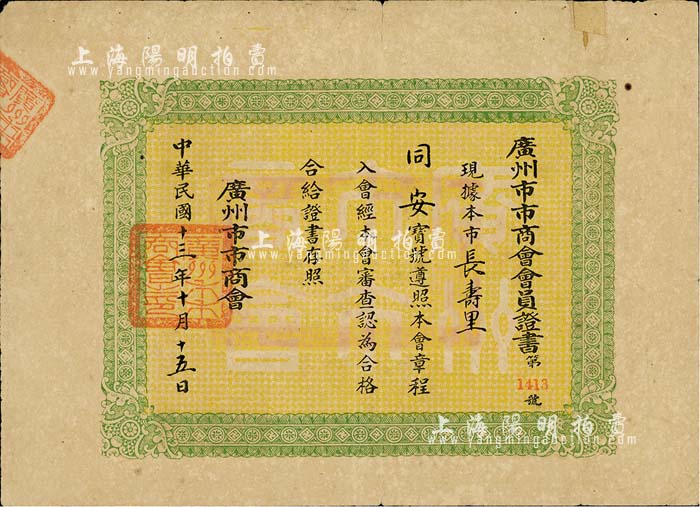 廣州市市商會會員證書第
1413
號
現據本市長壽里
同安寶號遵照本會章程
入會經本會審查認為合格
合給證書存照
廣州市市商會
中華民國十三年十月十五日
上海陽明拍賣
www.yangmingauction.com
上海陽明拍賣
www.yangmingauction.com
上海陽明拍賣
www.yangmingauction.com